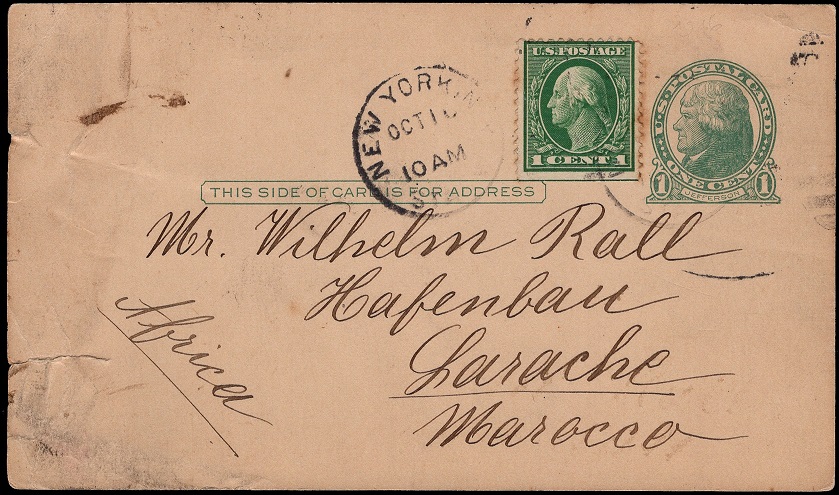 U.S. POSTAGE
1 CENT 1
U.S. POSTAL CARD
ONE CENT
1 JEFFERSON 1
NEW YORK, N
OCT 1
10 AM
THIS SIDE OF CARD IS FOR ADDRESS
Mr. Wilhelm Rall
Hafenbau
Larache
Marocco
Africa